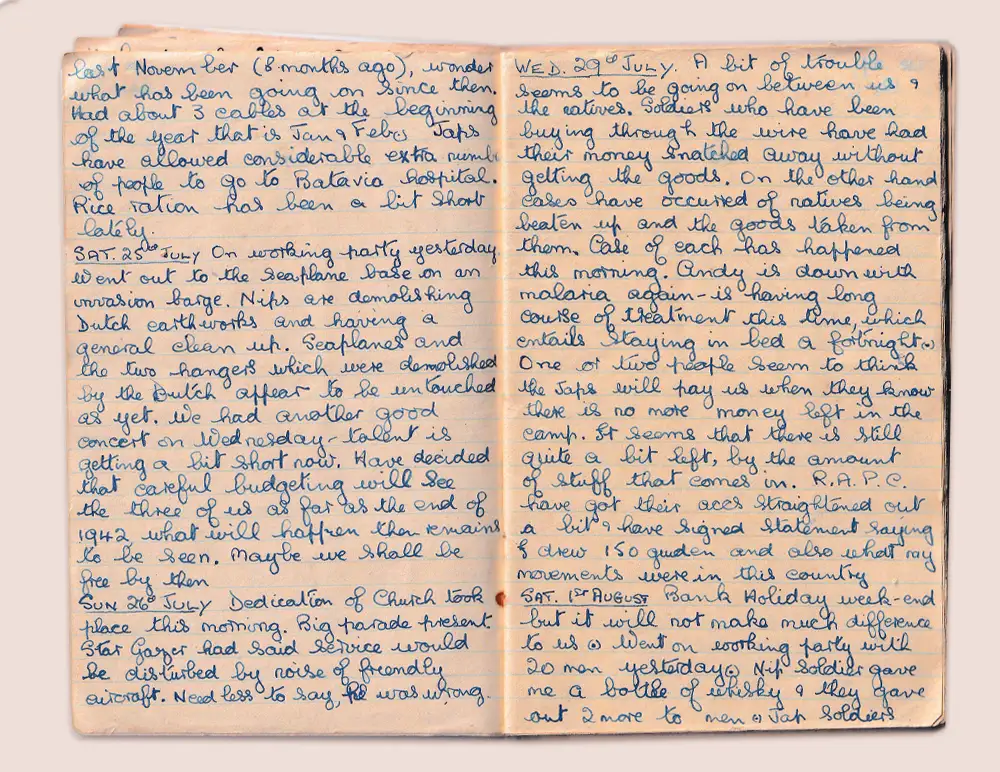 last November (8 months ago), wonder
what has been going on since then.
Had about 3 cables at the beginning
of the year that is Jan & Feb. Japs
have allowed considerable extra numb
of people to go to Batavia hospital.
Rice ration has been a bit short
lately.
SAT. 25th JULY On working party yesterday
Went out to the seaplane base on an
invasion barge. Nips are demolishing
Dutch earthworks and having a
general clean up. Seaplanes and
the two hangers which were demolished
by the Dutch appear to be untouched
as yet. We had another good
concert on Wednesday - talent is
getting a bit short now. Have decided
that careful budgeting will see
the three of us as far as the end of
1942 what will happen then remains
to be seen. Maybe we shall be
free by then
SUN 26th JULY Dedication of Church took
place this morning. Big parade present.
Star Gazer had said service would
be disturbed by noise of friendly
aircraft. Needless to say, he was wrong.
WED. 29th JULY. A bit of trouble
seems to be going on between us &
the natives. Soldiers who have been
buying through the wire have had
their money snatched away without
getting the goods. On the other hand
cases have occurred of natives being
beaten up and the goods taken from
them. Case of each has happened
this morning. Andy is down with
malaria again - is having long
course of treatment this time, which
entails staying in bed a fortnight.
One or two people seem to think
the Japs will pay us when they know
there is no more money left in the
camp. It seems that there is still
quite a bit left, by the amount
of stuff that comes in. R.A.P.C.
have got their accs straightened out
a bit & have signed statement saying
I drew 150 guden and also what my
movements were in this country
SAT. 1ST AUGUST Bank Holiday week-end
but it will not make much difference
to us. Went on working party with
20 men yesterday. Nip soldier gave
me a bottle of whisky & they gave
out 2 more to men. Jap soldiers